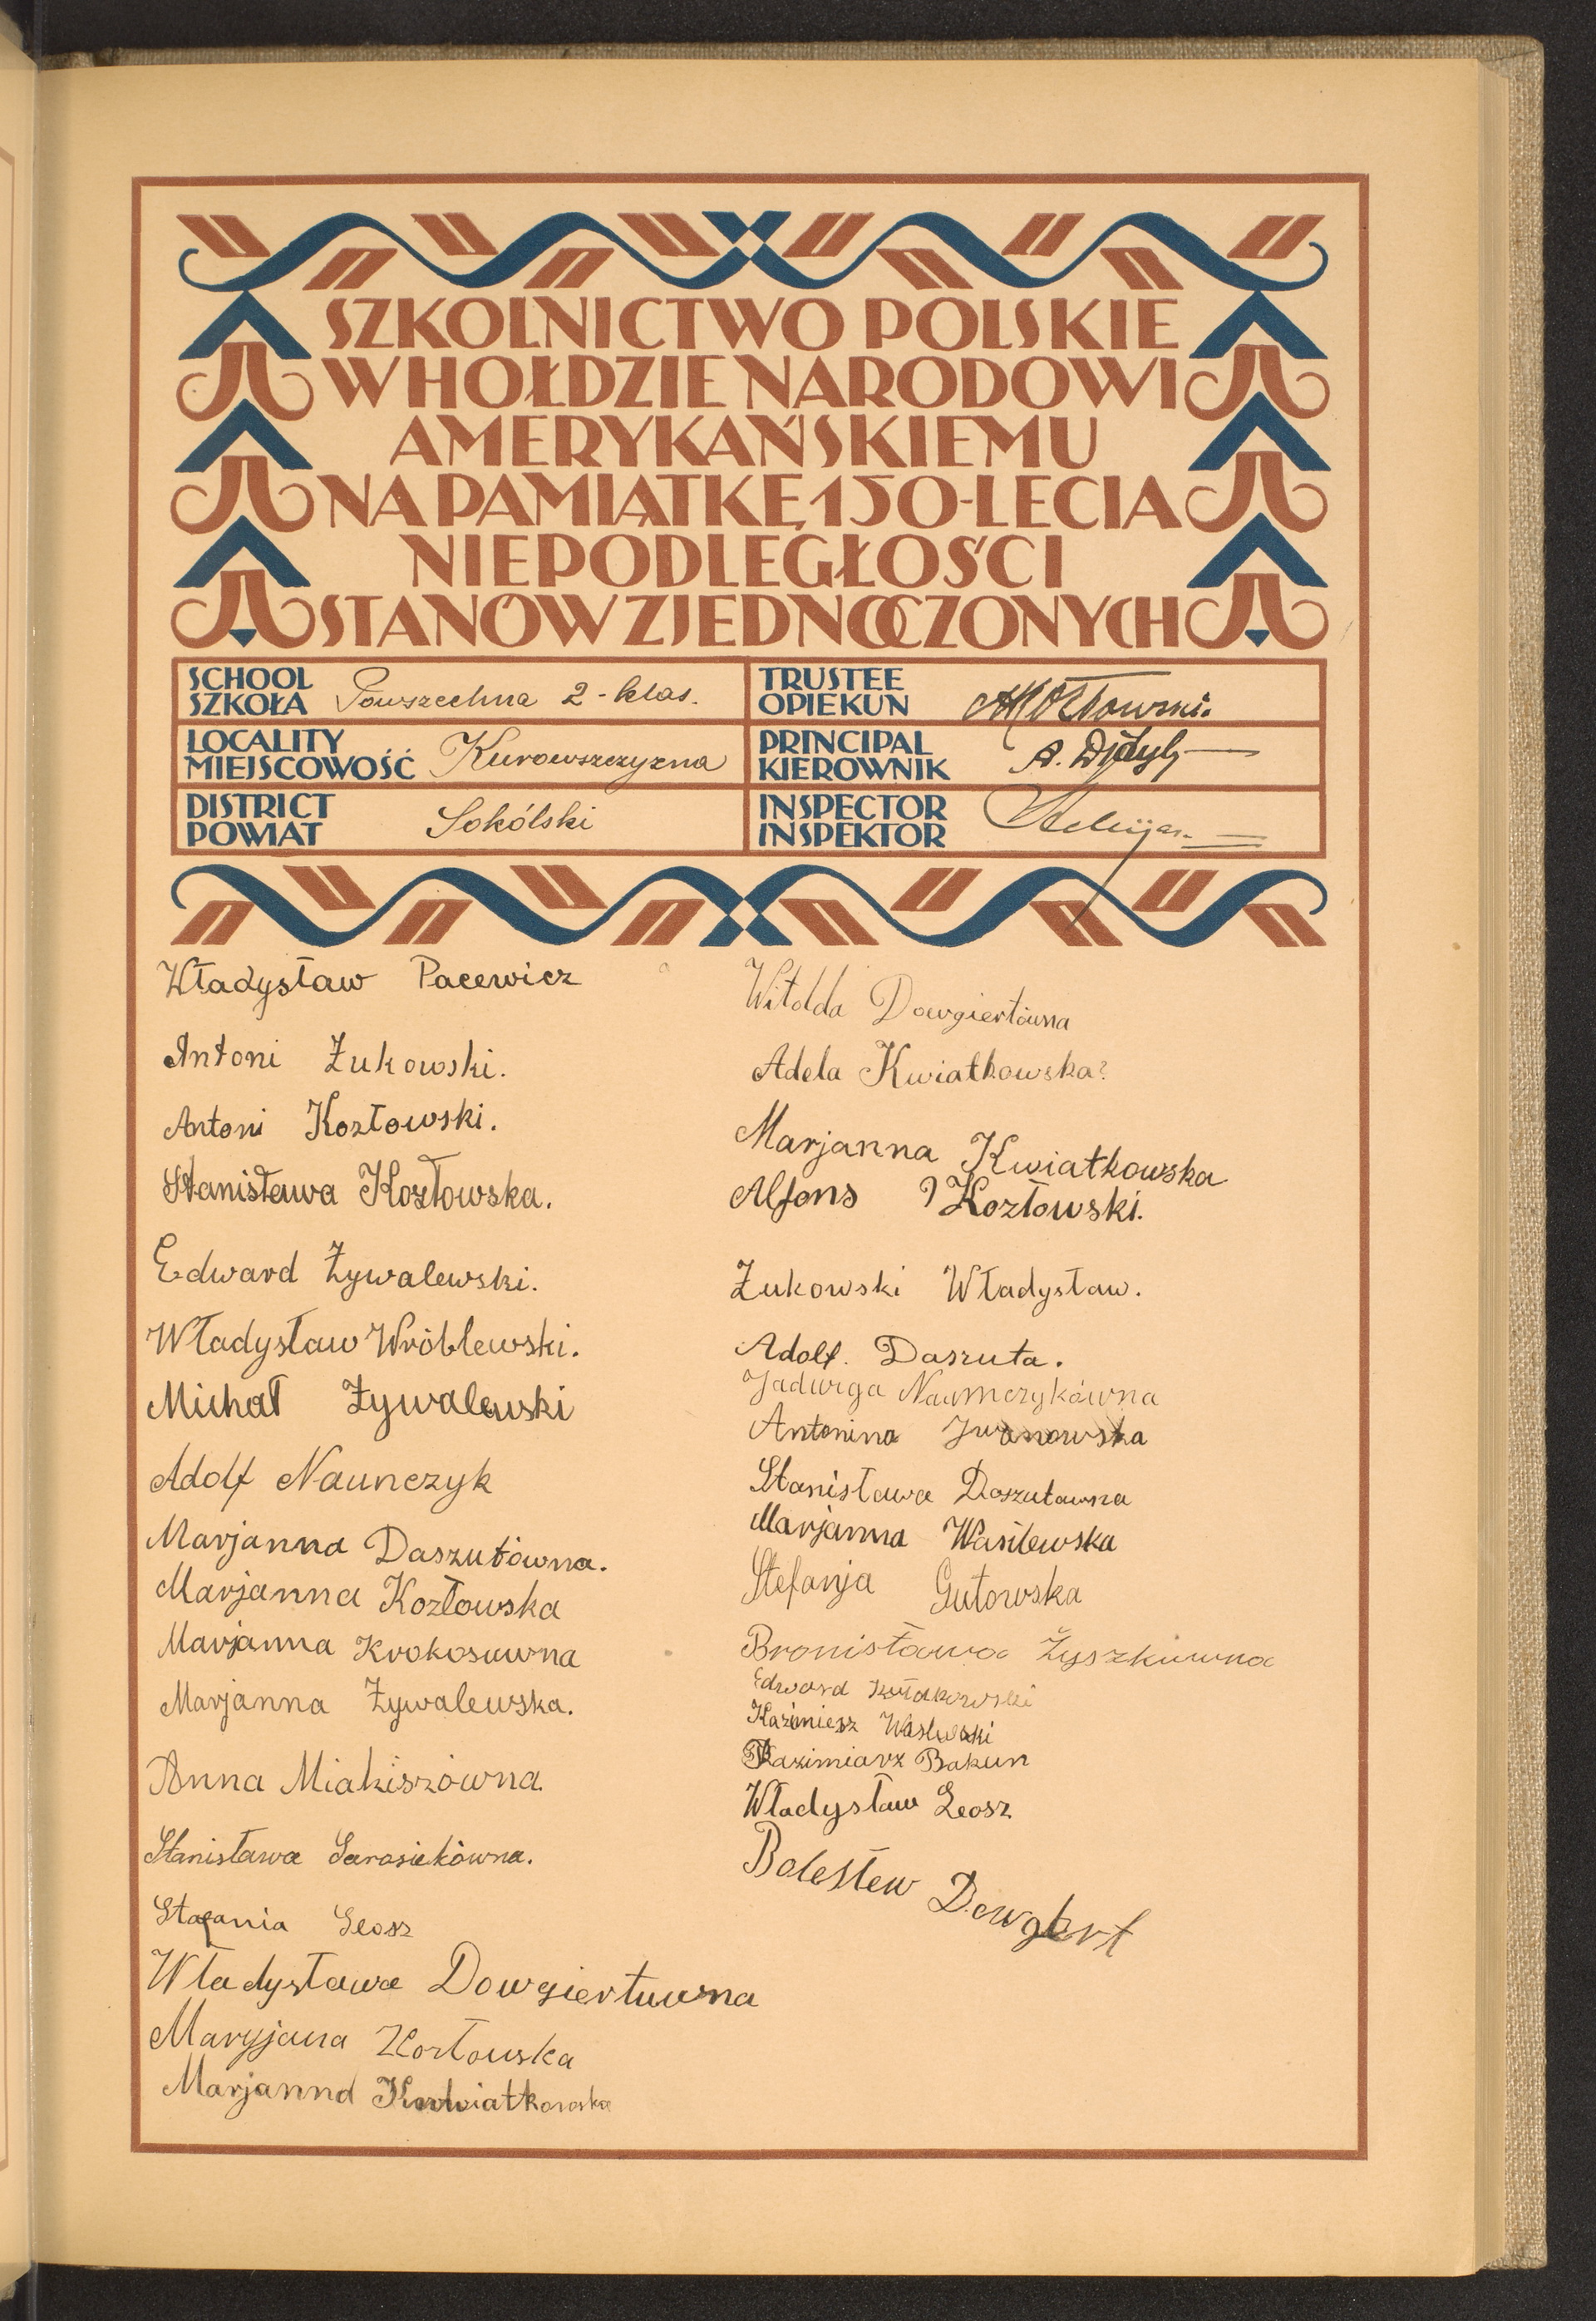 SZKOLNICTWO POLSKIE
W HOŁDZIE NARODOWI
AMERYKAŃSKIEMU
NA PAMIĄTKĘ 150-LECIA
NIEPODLEGŁOŚCI
STANÓW ZJEDNOCZONYCH
SCHOOL
SZKOŁA
Powszechna 2-klas.
TRUSTEE
OPIEKUN
LOCALITY
MIEJSCOWOŚĆ
Kurowszczyzna
PRINCIPAL
KIEROWNIK
A.
DISTRICT
POWIAT
Sokólski
INSPECTOR
INSPEKTOR
Władysław Pacewicz
Antoni Żukowski.
Antoni Kozłowski.
Stanisława Kozłowska.
Edward Żywalewski.
Władysław Wróblewski.
Michał Żywalewski
Adolf Naunczyk
Marjanna Daszutówna.
Marjanna Kozłowska
Marjanna Krokosuwna
Marjanna Żywalewska.
Anna Miakiszówna.
Stanisława Sarosiekówna.
Stafania Leosz
Władysława Dowgiertuwna
Maryjana Kozłowska
Marjanna Kwiatkowska
Witolda Dowgiertówna
Adela Kwiatkowska
Marjanna Kwiatkowska
Alfons Kozłowski.
Żukowski Władysław.
Adolf. Daszuta.
Jadwiga Naumczykówna
Antonina Iwanowska
Stanisława Daszutawna
Marjanna Wasilewska
Stefanja Gutowska
Bronisława Żyszkuwna
Edward Kułakowski
Kazimiesz
Kazimiarz Bakun
Władysław Leosz
Bolesłew Dowgert